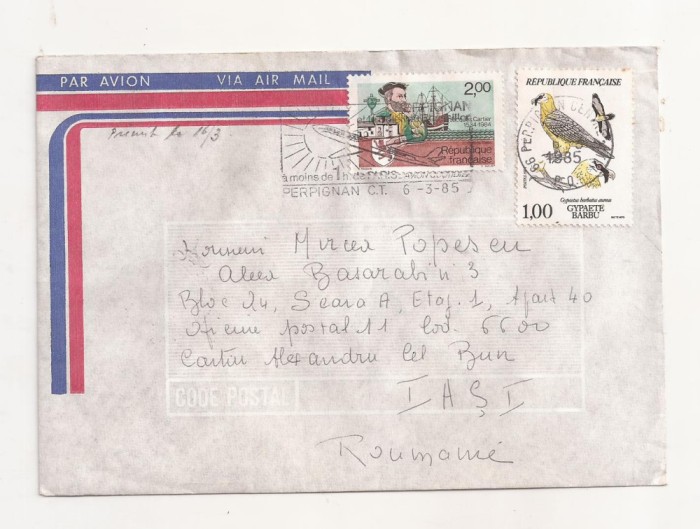 PAR AVION VIA AIR MAIL
2,00
Cartier
1534 1984
République
française
RÉPUBLIQUE FRANÇAISE
1985
Gypaetus barbatus aureus
1,00 GYPAETE
BARBU
à moins de 1 h. de
PERPIGNAN C.T. 6-3-85
16/3
Mircea Popescu
Aleea Basarabi n 3
Bloc 24, Scara A, Etaj. 1, Apart 40
Oficiul postal 11 Cod. 6600
Cartier Alexandru Cel Bun
IAȘI
CODE POSTAL
Roumanie